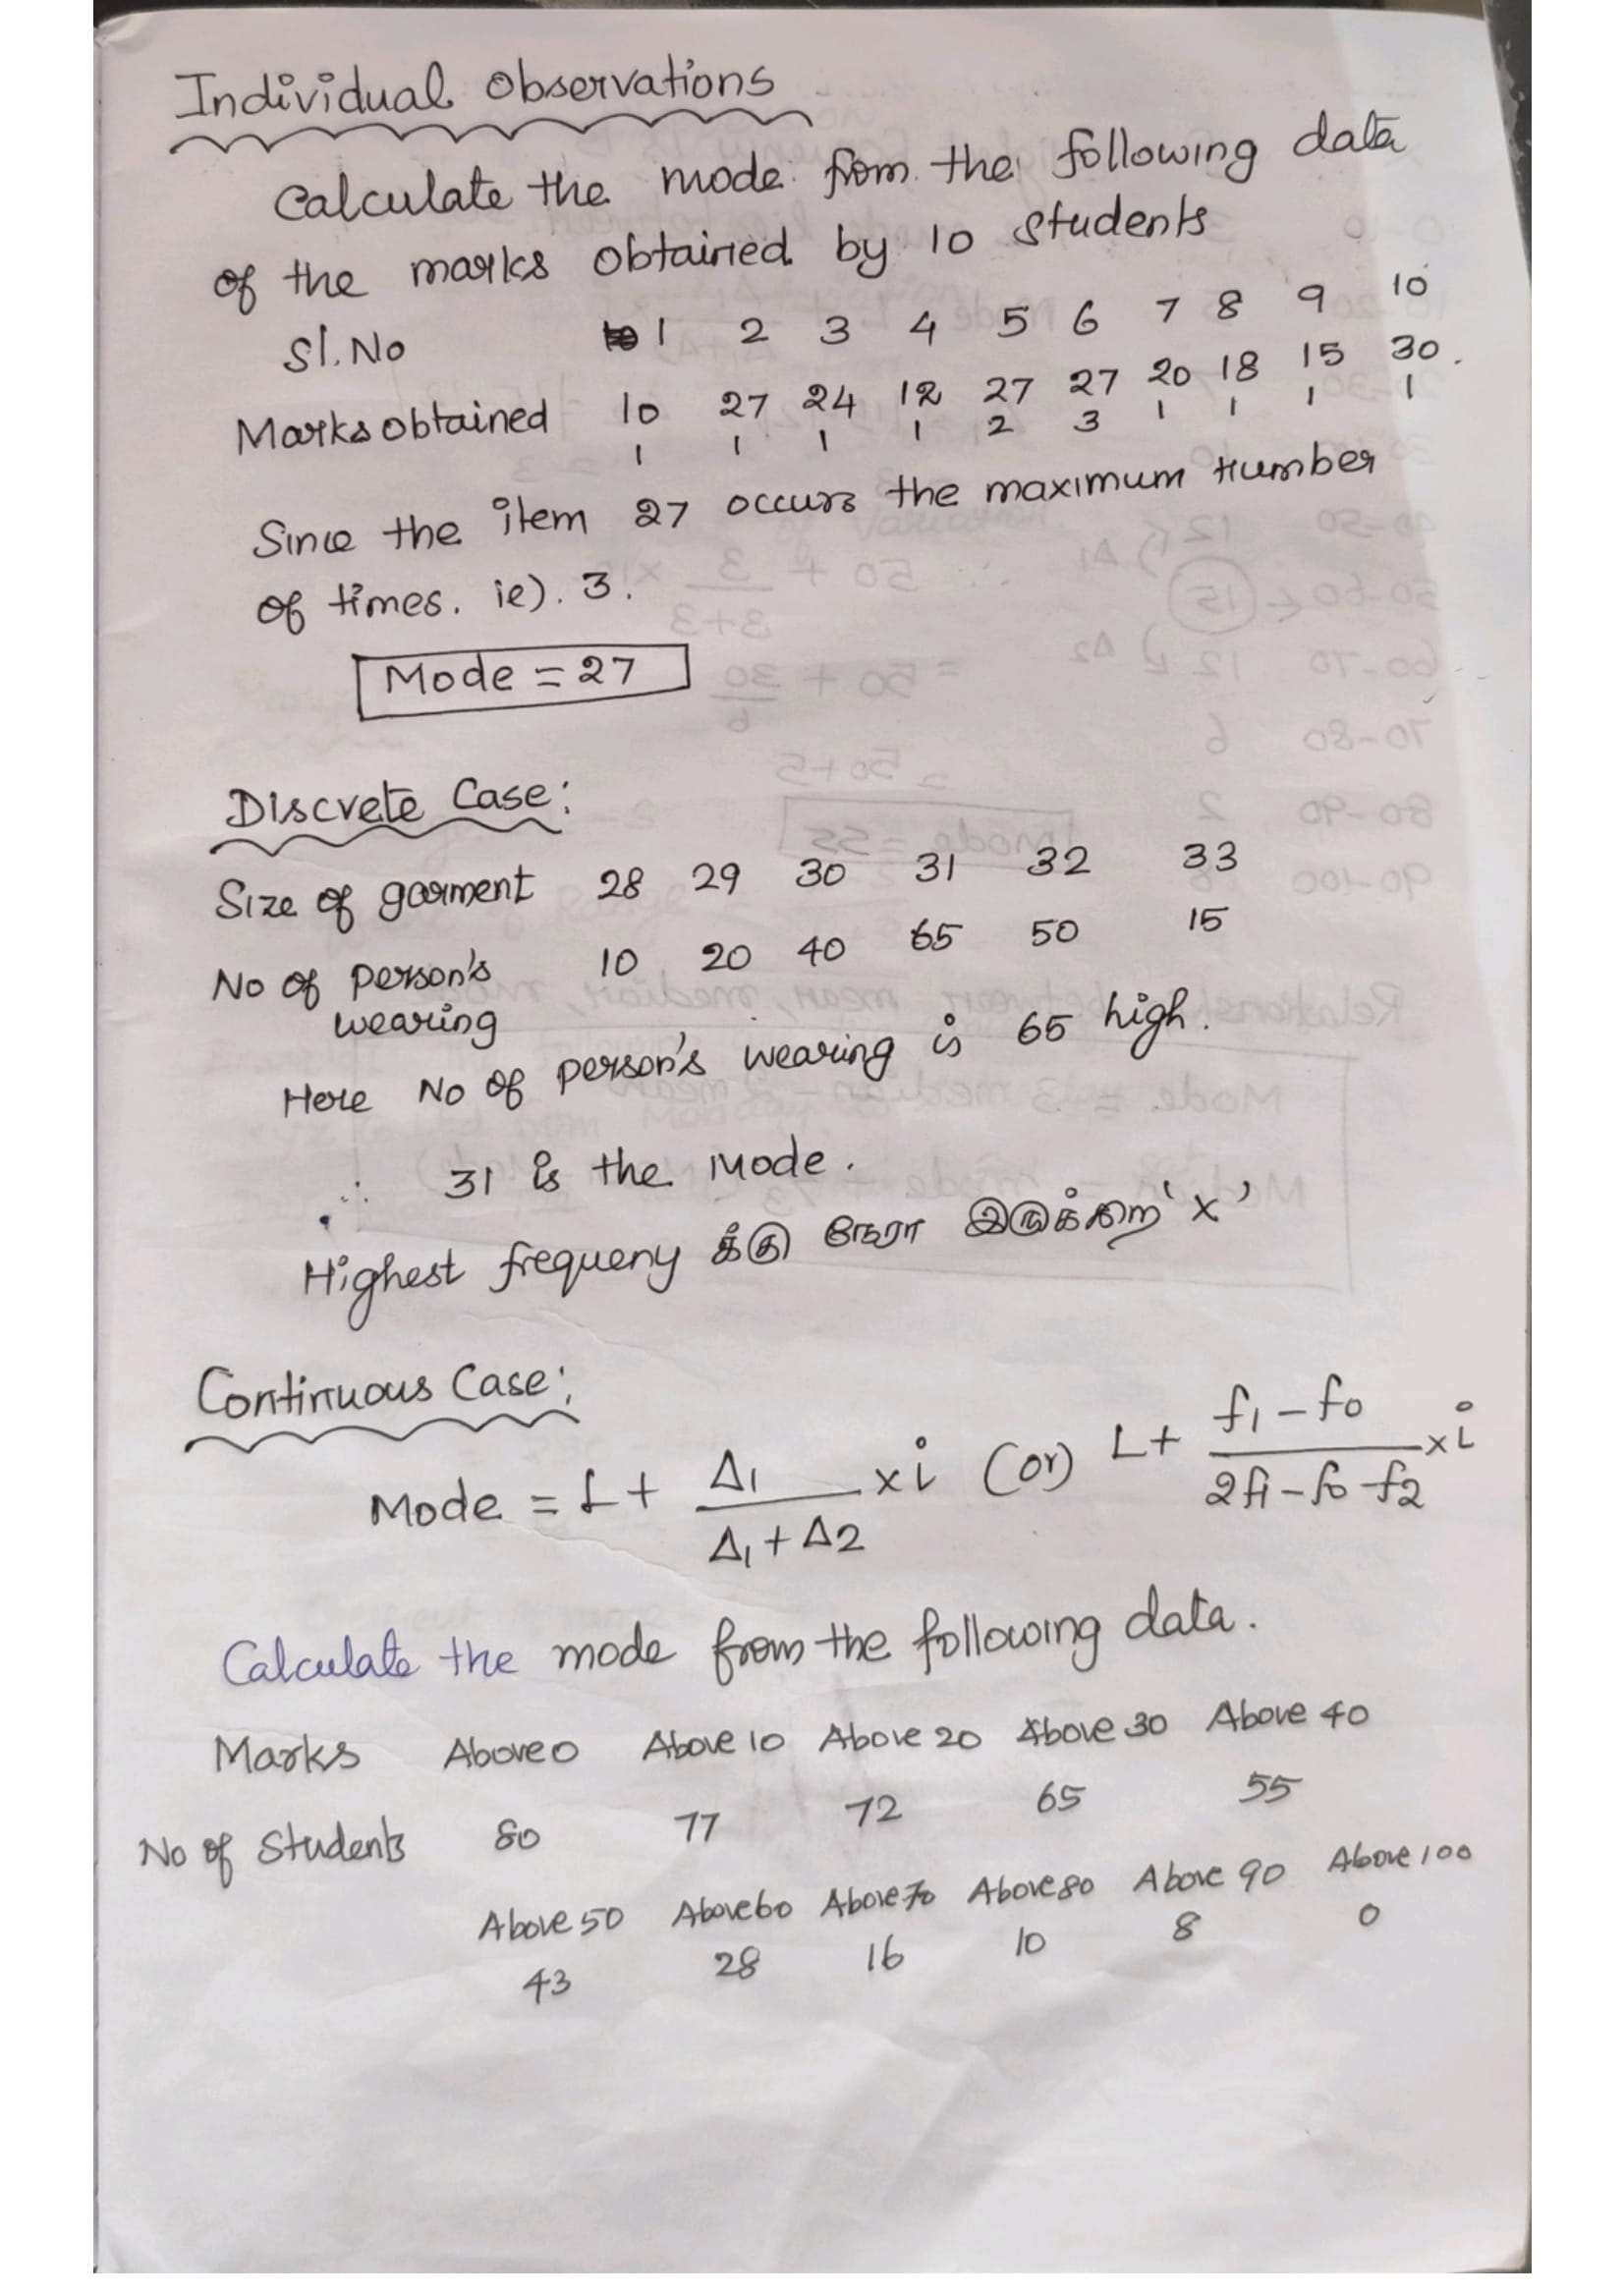 Individual Observations
Calculate the mode from the following data
of the marks obtained by 10 students
Sl.No 1 2 3 4 5 6 7 8 9 10
Marks obtained 10 27 24 12 27 27 20 18 15 30.
1 1 1 1 2 3 1 1 1 1
Since the item 27 occurs the maximum number
of times. ie). 3.
Mode = 27
Discrete Case:
Size of garment 28 29 30 31 32 33
No of person's 10 20 40 65 50 15
wearing
Here No of person's wearing is 65 high.
∴ 31 is the Mode.
Highest frequeny க்கு நேரா இருக்கிற 'x'
Continuous Case:
Mode = L + Δ1 / Δ1 + Δ2 x i (or) L + f1 - f0 / 2f1 - f0 - f2 x i
Calculate the mode from the following data.
Marks Above 0 Above 10 Above 20 Above 30 Above 40
No of Students 80 77 72 65 55
Above 50 Above 60 Above 70 Above 80 Above 90 Above 100
43 28 16 10 8 0